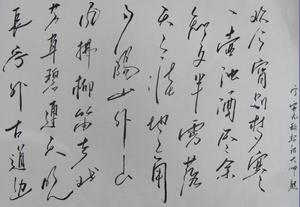 長亭外古道边
芳草碧連天晚
风拂柳笛声残
夕陽山外山
天之涯地之角
知交半零落
一壶浊酒尽余
欢今宵别梦寒